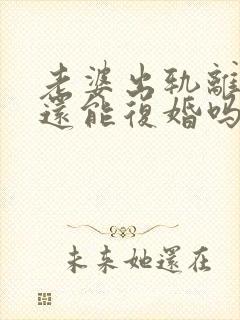 老婆出軌離
還能復婚吗
未来她還在